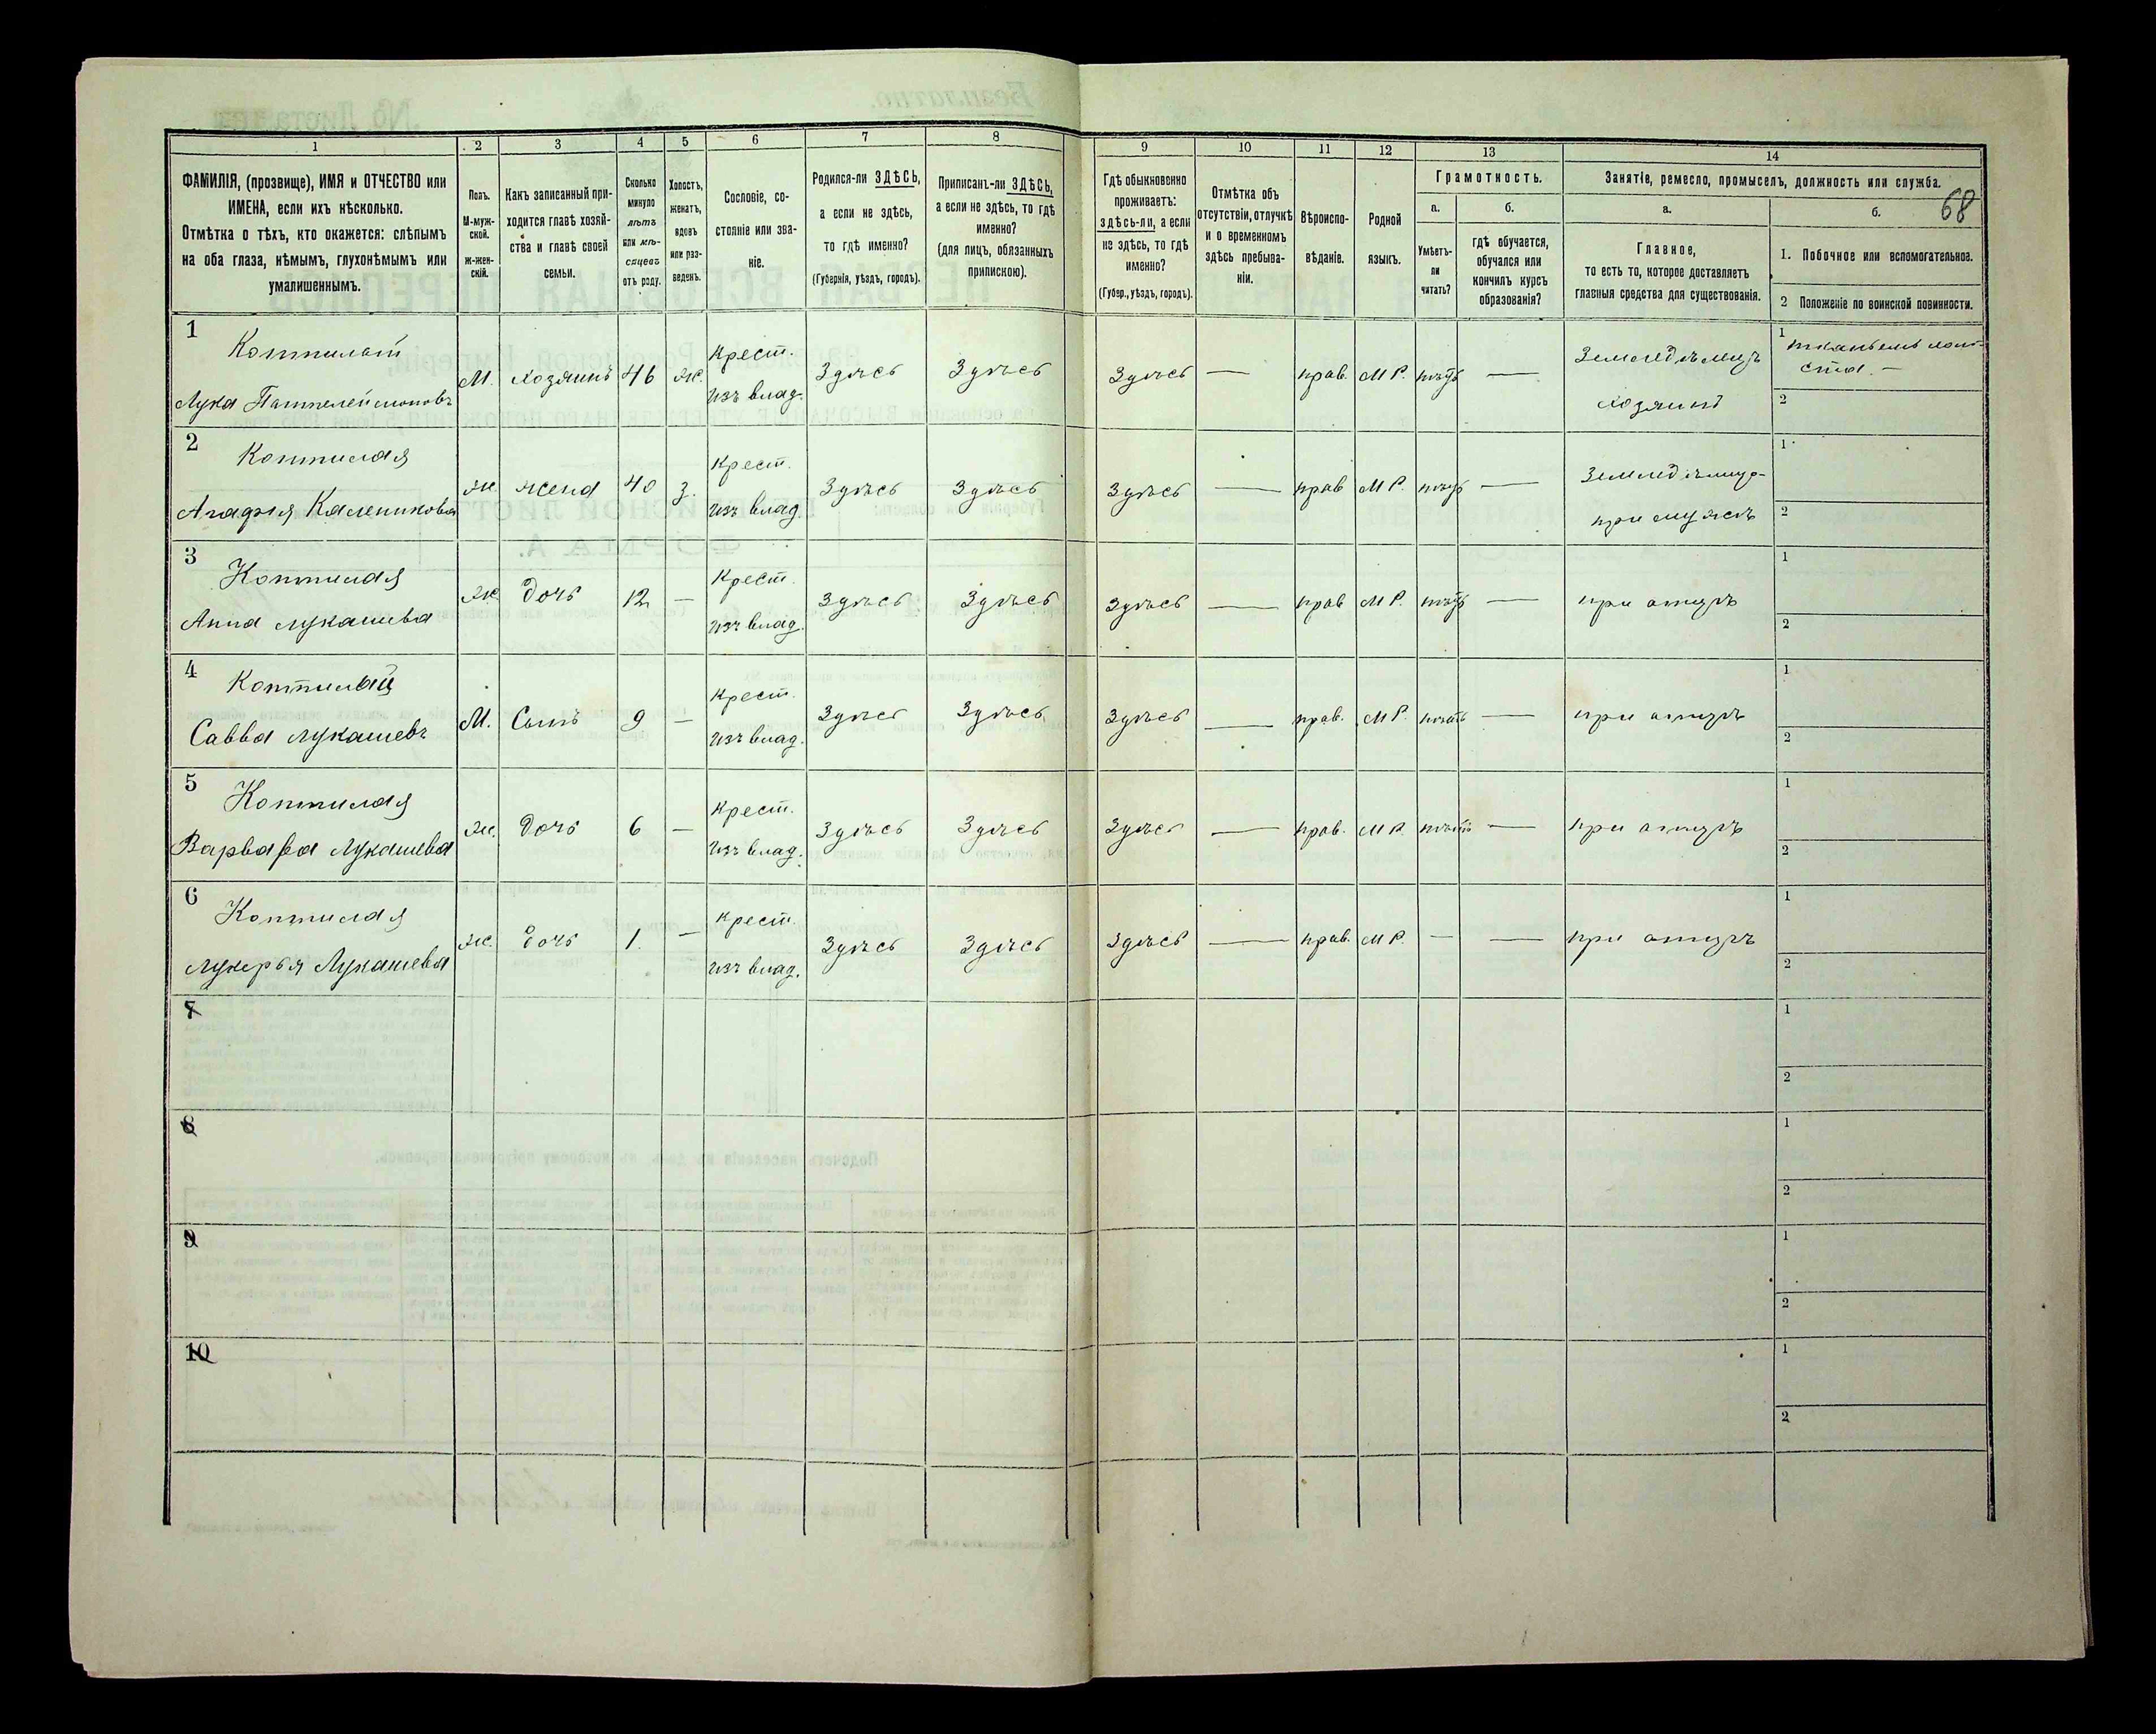 1 2 3 4 5 6 7 8 9 10 11 12 13 14
ФАМИЛІЯ, (прозвище), ИМЯ и ОТЧЕСТВО или
ИМЕНА, если ихъ нѣсколько.
Отмѣтка о тѣхъ, кто окажется: слѣпымъ
на оба глаза, нѣмымъ, глухонѣмымъ или
умалишеннымъ.
Полъ.
М-муж-
ской.
Ж-жен-
скій.
Какъ записанный при-
ходится главѣ хозяй-
ства и главѣ своей
семьи.
Сколько
минуло
лѣтъ
или мѣ-
сяцевъ
отъ роду.
Холостъ,
женатъ,
вдовъ
или раз-
веденъ.
Сословіе, со-
стояніе или зва-
ніе.
Родился-ли ЗДѢСЬ,
а если не здѣсь,
то гдѣ именно?
(Губернія, уѣздъ, городъ).
Приписанъ-ли ЗДѢСЬ,
а если не здѣсь, то гдѣ
именно?
(для лицъ, обязанныхъ
припискою).
Гдѣ обыкновенно
проживаетъ:
здѣсь-ли, а если
не здѣсь, то гдѣ
именно?
(Губер., уѣздъ, городъ).
Отмѣтка объ
отсутствіи, отлучкѣ
и о временномъ
здѣсь пребыва-
ніи.
Вѣроиспо-
вѣданіе.
Родной
языкъ.
Грамотность.
а.
Умѣетъ-
ли
читать?
б.
гдѣ обучается,
обучался или
кончилъ курсъ
образованія?
Занятіе, ремесло, промыселъ, должность или служба.
68
а.
Главное,
то есть то, которое доставляетъ
главныя средства для существованія.
б.
1. Побочное или вспомогательное.
2 Положеніе по воинской повинности.
1
Лука
М. хозяинъ 46 ж.
Крест.
изъ влад.
Здѣсь Здѣсь Здѣсь — прав. М Р. нѣтъ —
Земледѣлецъ
хозяинъ
1
2
2
Агафія
ж. жена 40 з.
Крест.
изъ влад.
Здѣсь Здѣсь Здѣсь — прав М Р. нѣтъ —
при мужѣ
1
2
3
Анна Лукашева
ж. дочь 12 —
Крест.
изъ влад.
Здѣсь Здѣсь Здѣсь — прав М Р. нѣтъ — при отцѣ
1
2
4
Савва Лукашевъ
М. Сынъ 9 —
Крест.
изъ влад.
Здѣсь Здѣсь Здѣсь — прав. М Р. нѣтъ — при отцѣ
1
2
5
Варвара Лукашева
ж. дочь 6 —
Крест.
изъ влад.
Здѣсь Здѣсь Здѣсь — прав. М Р. нѣтъ — при отцѣ
1
2
6
Лукерья Лукашева
ж. дочь 1. —
Крест.
изъ влад.
Здѣсь Здѣсь Здѣсь — прав. М Р. — — при отцѣ
1
2
7
1
2
8
1
2
9
1
2
10
1
2